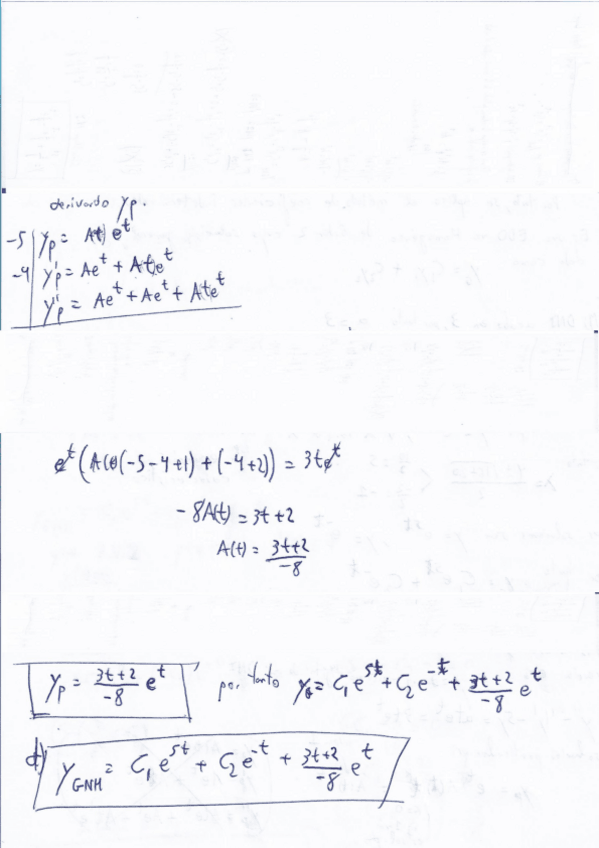 derivando yp.
-5 | yp = A(t) e^t
-4 | y'p = Ae^t + A(t)e^t
y''p = Ae^t + Ae^t + A(t)e^t
e^t (A(t)(-5-4+1) + (-4+2)) = 3te^t
-8A(t) = 3t+2
A(t) = (3t+2)/-8
yp = (3t+2)/-8 e^t por tanto y = C1 e^5t + C2 e^-t + (3t+2)/-8 e^t
d) yGNH = C1 e^5t + C2 e^-t + (3t+2)/-8 e^t